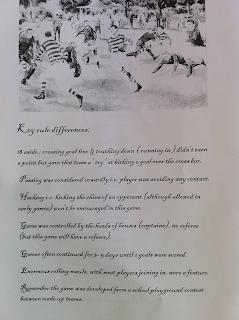 Key rule differences:
18 aside; crossing goal line & touching down (running in) didn't earn
a point but gave that team a 'try' at kicking a goal over the cross bar.
Passing was considered cowardly i.e. player was avoiding any contact.
Hacking i.e. kicking the shins of an opponent (although allowed in
early games) won't be encouraged in this game.
Game was controlled by the heads of houses (captains), no referee
(but this game will have a referee).
Games often continued for days until 2 goals were scored.
Enormous rolling mauls, with most players joining in, were a feature.
Remember the game was developed from a school playground contest
between made up teams.